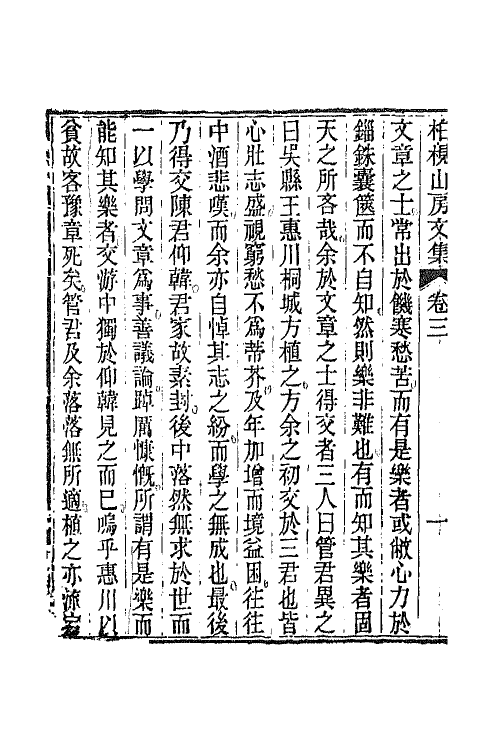 柏梘山房文集 卷三 一
文章之士常出於饑寒愁苦而有是樂者或敝心力於
錙銖囊篋而不自知然則樂非難也有而知其樂者固
天之所吝哉余於文章之士得交者三人曰管君異之
曰吳縣王惠川桐城方植之方余之初交於三君也皆
心壯志盛視窮愁不爲蒂芥及年加增而境益困往往
中酒悲嘆而余亦自悼其志之紛而學之無成也最後
乃得交陳君仰韓君家故素封後中落然無求於世而
一以學問文章爲事善議論踔厲慷慨所謂有是樂而
能知其樂者交游中獨於仰韓見之而已嗚乎惠川以
貧故客豫章死矣管君及余落落無所適植之亦